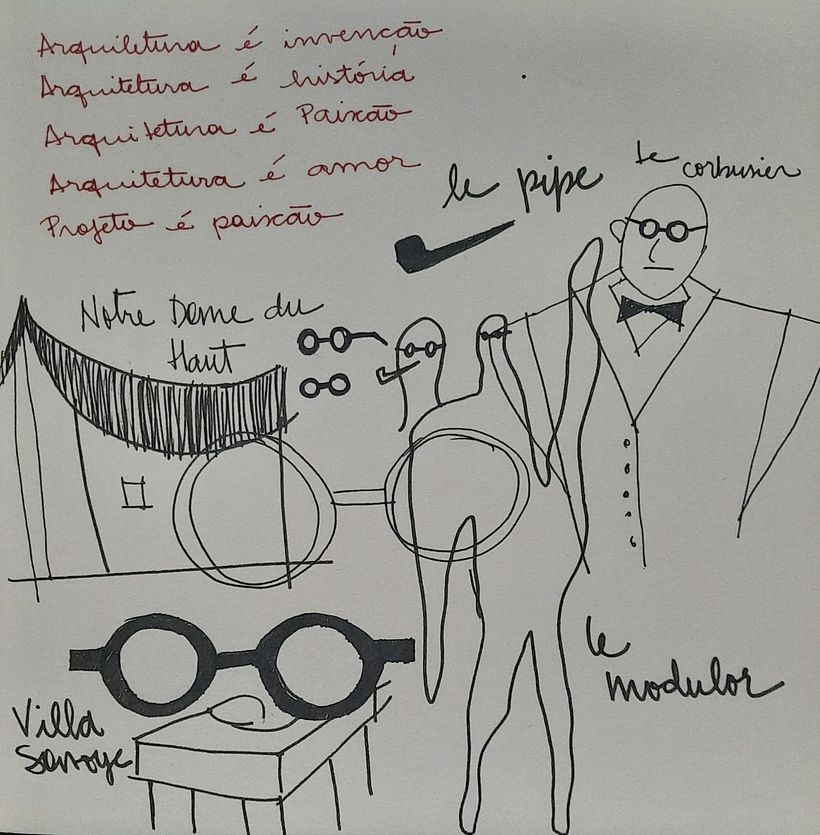 Arquitetura é invenção
Arquitetura é história
Arquitetura é Paixão
Arquitetura é amor
Projeto é paixão
le pipe
Le corbusier
Notre Dame du
Haut
le
modulor
Villa
Savoye